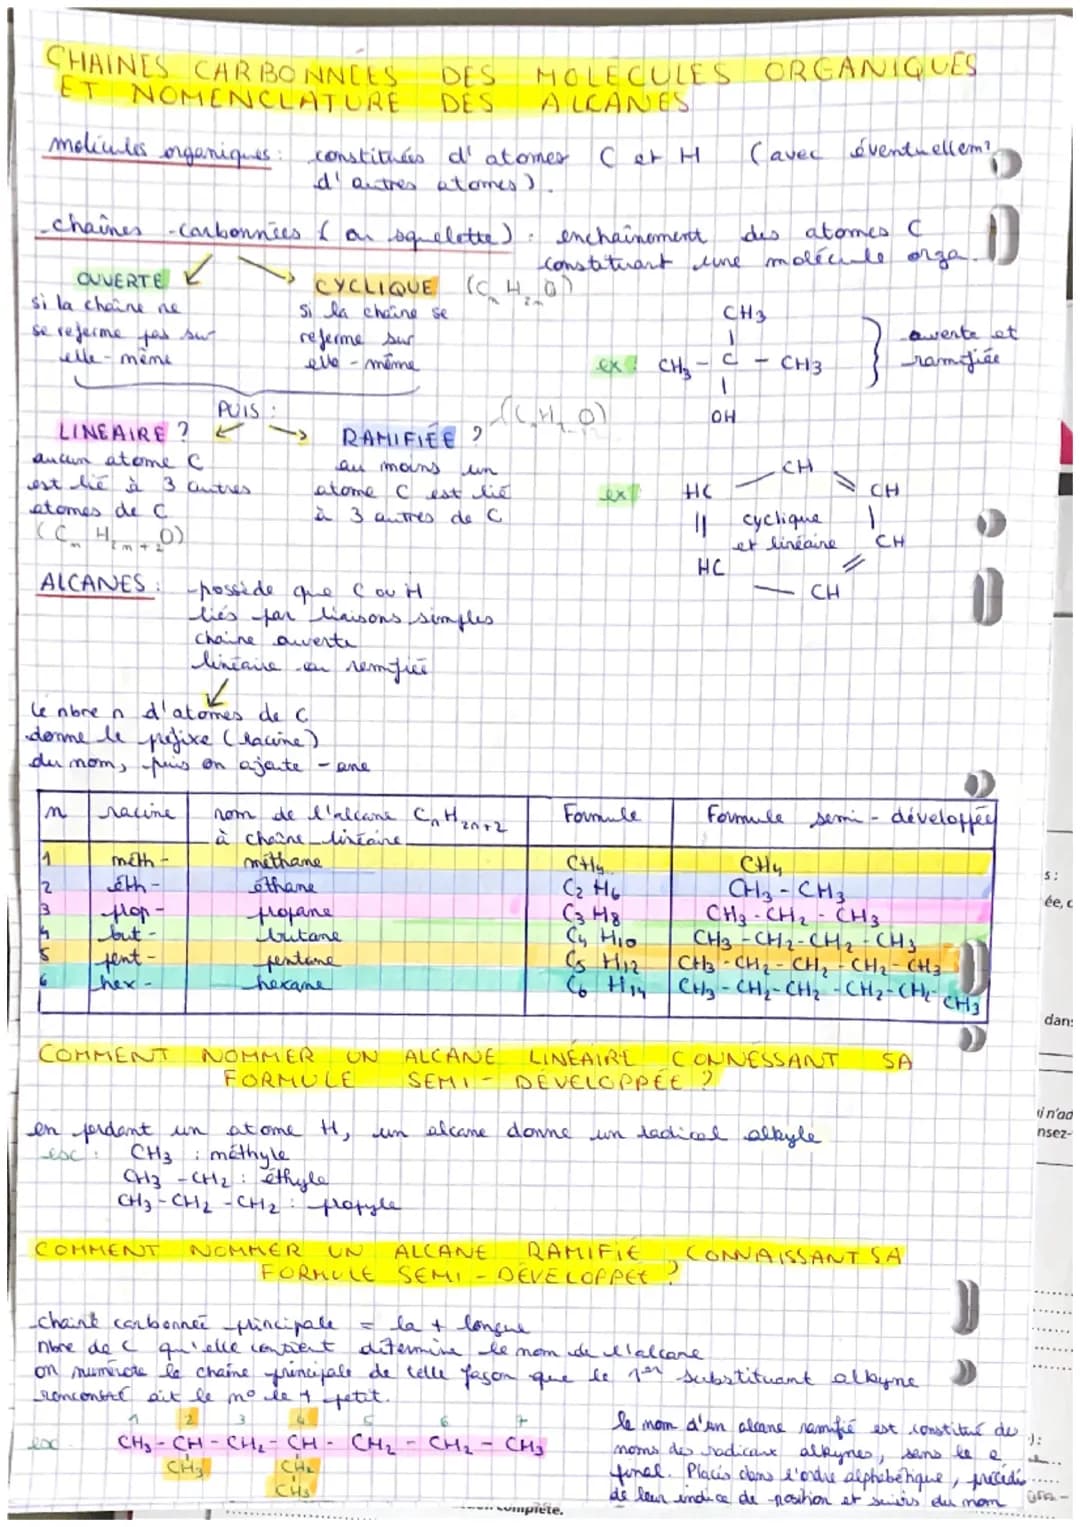 CHAINES CARBONNÉES DES MOLÉCULES ORGANIQUES
ET NOMENCLATURE DES ALCANES
molécules organiques : constituées d'atomes C et H (avec éventuellemt
d'autres atomes).
chaînes carbonnées (ou squelette) : enchaînement des atomes C
constituant une molécule orga.
OUVERTE
si la chaîne ne
se referme pas sur
elle-même
CYCLIQUE (CnH2nO)
si la chaîne se
referme sur
elle-même
CH3
|
ex : CH3 - C - CH3
|
OH
ouverte et
ramifiée
PUIS :
LINÉAIRE ?
aucun atome C
est lié à 3 autres
atomes de C
(CnH2n+2O)
RAMIFIÉE ?
au moins un
atome C est lié
à 3 autres de C
ex
CH
HC CH
|| cyclique |
et linéaire CH
HC
CH
ALCANES : -possède que C ou H
liés par liaisons simples
chaine ouverte
linéaire ou remifiée
le nbre n d'atomes de C
donne le préfixe (racine)
du nom, puis on ajoute -ane
n racine nom de l'alcane CnH2n+2 à chaîne linéaire Formule Formule semi-développée
1 méth- méthane CH4 CH4
2 éth- éthane C2H6 CH3-CH3
3 prop- propane C3H8 CH3-CH2-CH3
4 but- butane C4H10 CH3-CH2-CH2-CH3
5 pent- pentane C5H12 CH3-CH2-CH2-CH2-CH3
6 hex- hexane C6H14 CH3-CH2-CH2-CH2-CH2-CH3
COMMENT NOMMER UN ALCANE LINÉAIRE CONNESSANT SA
FORMULE SEMI-DÉVELOPPÉE ?
en perdant un atome H, un alcane donne un radical alkyle
ex : CH3 : méthyle
CH3-CH2 : éthyle
CH3-CH2-CH2 : propyle
COMMENT NOMMER UN ALCANE RAMIFIÉ CONNAISSANT SA
FORMULE SEMI-DÉVELOPPÉE ?
chaine carbonnée principale = la + longue
nbre de C qu'elle contient détermine le nom de l'alcane
on numérote la chaîne principale de telle façon que le 1er substituant alkyne
rencontré ait le n° le + petit.
1 2 3 4 5 6 7
ex CH3-CH-CH2-CH-CH2-CH2-CH3
CH3 CH2
CH3
le nom d'un alcane ramifié est constitué des
noms des radicaux alkynes, sans le e
final. Placés dans l'ordre alphabétique, précédés
de leur indice de position et suivis du nom
s :
ée, c
dans
ui n'ad
nsez-
complète.